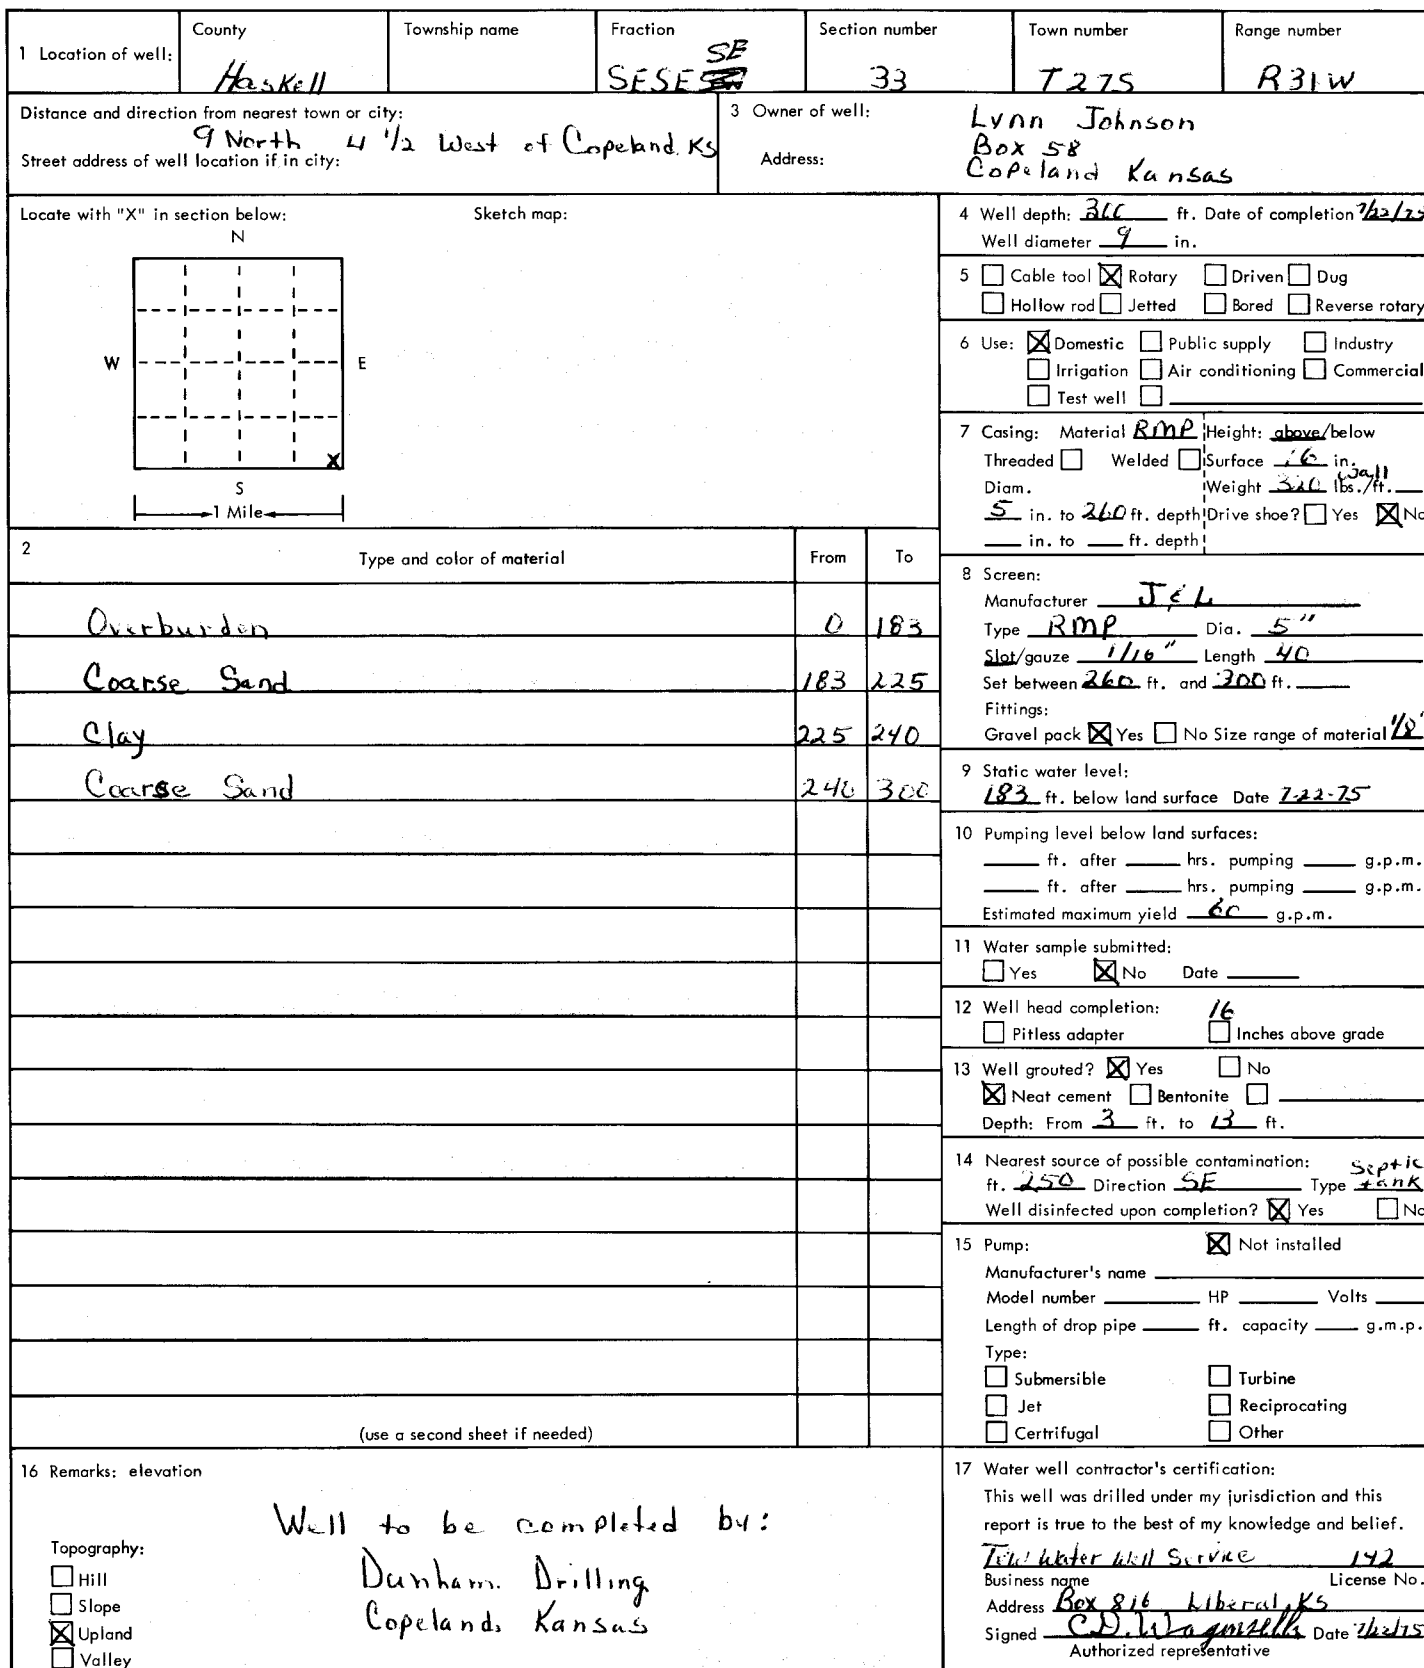 1 Location of well:
County
Haskell
Township name
Fraction
SE
SESE
Section number
33
Town number
T27S
Range number
R31W
Distance and direction from nearest town or city:
9 North 4 1/2 West of Copeland, KS
Street address of well location if in city:
3 Owner of well:
Lynn Johnson
Address:
Box 58
Copeland Kansas
Locate with "X" in section below:
Sketch map:
N
W
E
X
S
1 Mile
4 Well depth: 300 ft. Date of completion 7/22/75
Well diameter 9 in.
5 Cable tool X Rotary Driven Dug
Hollow rod Jetted Bored Reverse rotary
6 Use: X Domestic Public supply Industry
Irrigation Air conditioning Commercial
Test well
7 Casing: Material RMP Height: above/below
Threaded Welded Surface 16 in.
Diam. Weight 320 lbs./ft. Wall
5 in. to 260 ft. depth Drive shoe? Yes X No
in. to ft. depth
2
Type and color of material
From
To
Overburden 0 183
Coarse Sand 183 225
Clay 225 240
Coarse Sand 240 300
8 Screen:
Manufacturer J & L
Type RMP Dia. 5"
Slot/gauze 1/16" Length 40
Set between 260 ft. and 300 ft.
Fittings:
Gravel pack X Yes No Size range of material 1/8"
9 Static water level:
183 ft. below land surface Date 7-22-75
10 Pumping level below land surfaces:
ft. after hrs. pumping g.p.m.
ft. after hrs. pumping g.p.m.
Estimated maximum yield 60 g.p.m.
11 Water sample submitted:
Yes X No Date
12 Well head completion: 16
Pitless adapter Inches above grade
13 Well grouted? X Yes No
X Neat cement Bentonite
Depth: From 3 ft. to 13 ft.
14 Nearest source of possible contamination: Septic
ft. 250 Direction SE Type tank
Well disinfected upon completion? X Yes No
15 Pump: X Not installed
Manufacturer's name
Model number HP Volts
Length of drop pipe ft. capacity g.m.p.
Type:
Submersible Turbine
Jet Reciprocating
Certrifugal Other
(use a second sheet if needed)
16 Remarks: elevation
Well to be completed by:
Dunham Drilling
Copeland, Kansas
Topography:
Hill
Slope
X Upland
Valley
17 Water well contractor's certification:
This well was drilled under my jurisdiction and this
report is true to the best of my knowledge and belief.
Water Well Service 142
Business name License No.
Address Box 816 Liberal, KS
Signed C.D. Date 7/22/75
Authorized representative